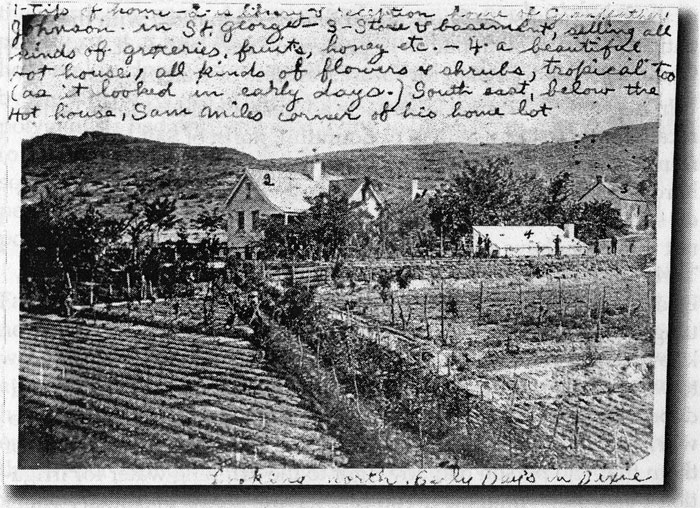 1-Tips of home - 2 is library & reception home of
Johnson. in St. George - 3 - Store & basement, selling all
kinds of groceries, fruits, honey etc. - 4. a beautiful
hot house, all kinds of flowers & shrubs, tropical too
(as it looked in early days.) South east, below the
Hot house, Sam Miles corner of his home lot
2
1
3
4
Looking north. Early Day's in Dixie